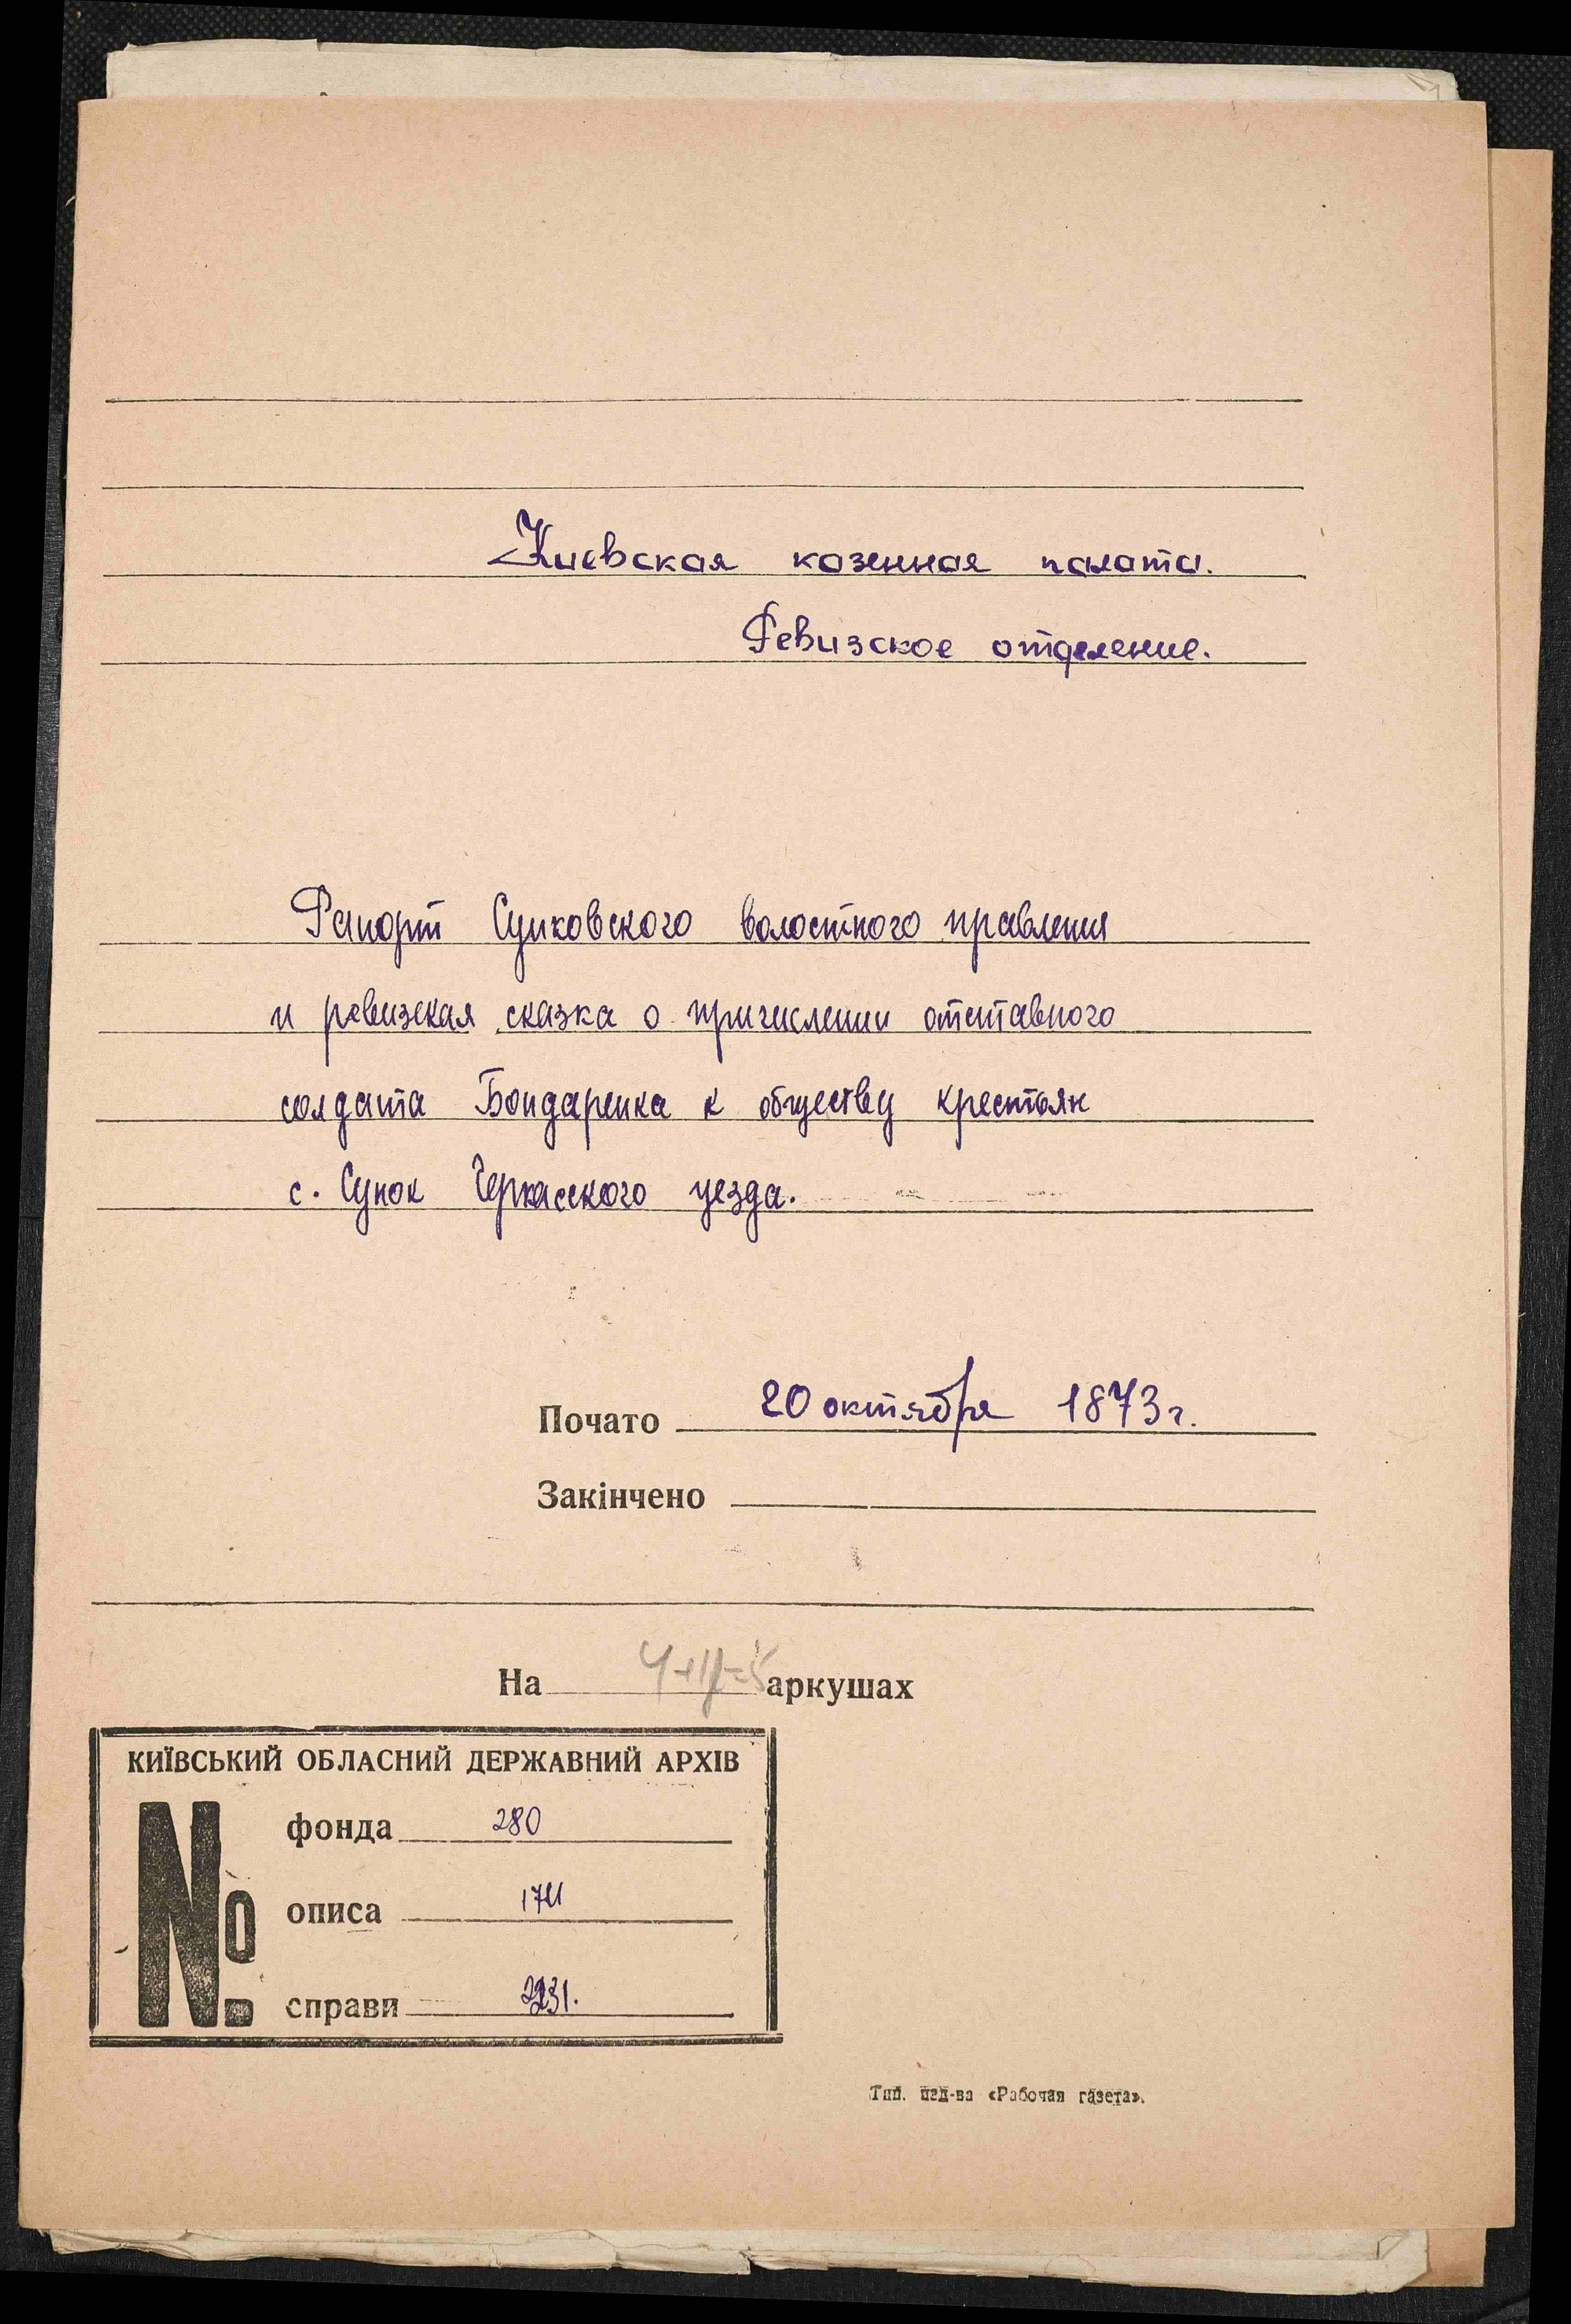 Киевская казенная палата.
Ревизское отделение.
Рапорт Сунковского волостного правления
и ревизская сказка о причислении отставного
солдата Бондаренка к обществу крестьян
с. Сунок Черкасского уезда.
Почато 20 октября 1873 г.
Закінчено
На 4+1/=5 аркушах
КИЇВСЬКИЙ ОБЛАСНИЙ ДЕРЖАВНИЙ АРХІВ
№
фонда 280
описа 174
справи 2231.
Тип. изд-ва «Рабочая газета».